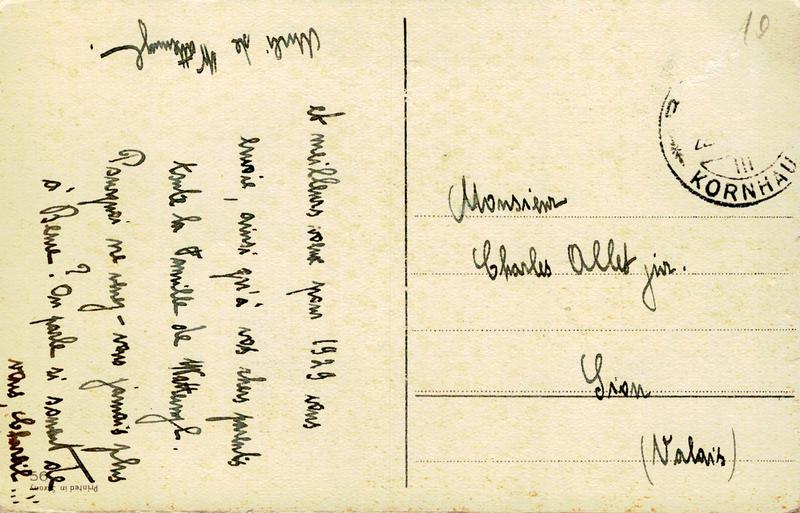 et meilleurs vœux pour 1929 vous
envoie, ainsi qu'à vos chers parents
toute la famille de
Pourquoi ne vous jamais plus
à Berne? On parle si souvent de
vous,
de
Printed in
Monsieur
Charles Allet jnr.
Sion
(Valais)
10
III
KORNHAU